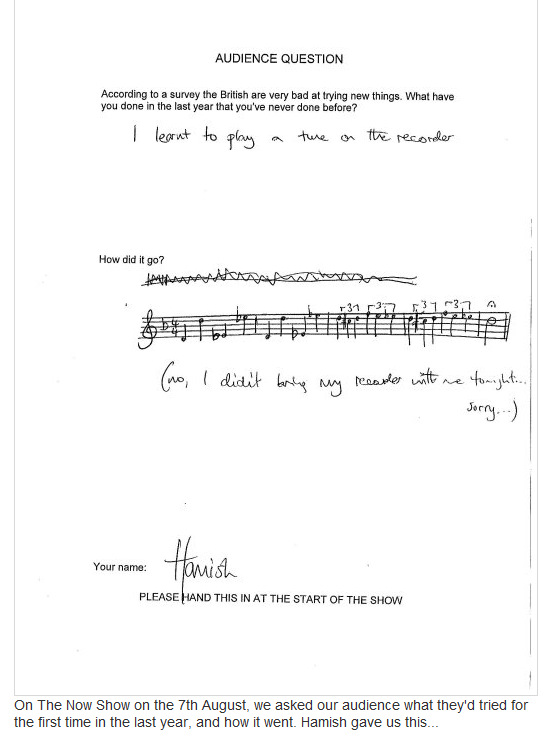 AUDIENCE QUESTION
According to a survey the British are very bad at trying new things. What have
you done in the last year that you've never done before?
I learnt to play a tune on the recorder
How did it go?
3 3 3 3
(no, I didn't bring my recorder with me tonight...
sorry...)
Your name: Hamish
PLEASE HAND THIS IN AT THE START OF THE SHOW
On The Now Show on the 7th August, we asked our audience what they'd tried for
the first time in the last year, and how it went. Hamish gave us this...